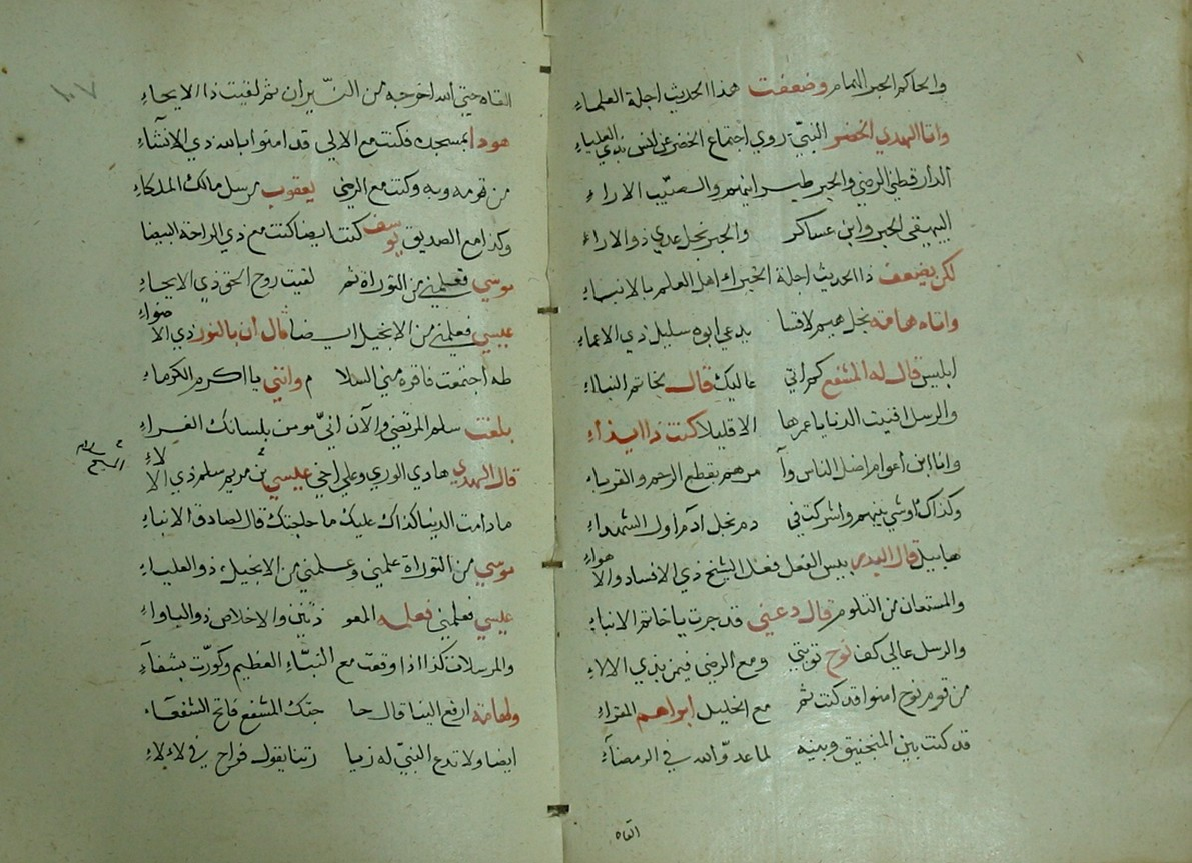 والحاكم الحبر التمام وضعفت هذا الحديث اجلة العلماء
واتا المهدي الخضر النبي روي اجتماع الخضر عن انس بذي العلياء
الدارقطني الرضي والحبر طبرانيهم والصيب الاراء
البيهقي الحبر وابن عساكر والحبر نجل عدي ذو الاراء
لكن يضعف ذا الحديث اجلة الخبراء اهل العلم بالانباء
واتاه هامة نجل هيم لاقسا يدعي ابوه سليل ذي الاعماء
ابليس قال له المشفع كم اتي عاليك قال بخاتم النبااء
والرسل افنيت الدنا يا عمرها الا قليلا كنت ذا ايذاء
وانا ابن أعوام اضل الناس وآ مرهم بقطع الرحم والقرباء
وكذاك اوشي بينهم واشركت في دم نجل ادم اول الشهداء
هابيل قال البدر بيس الفعل فعل الشيخ ذي الافساد والاهواء
والمستعان من التلوم قال دعني قد جرت يا خاتم الانباء
والرسل عالي كف نوح توبتي ومع الرضي فيمن بذي الالاء
من قوم نوح امنوا قد كنت ثم مع الخليل ابراهم القراء
قد كنت بين المنجنيق وبينه لما عدو الله في الرمضآء
القاه
القاه حتي الله اخرجه من النيران ثم لقيت ذا الايحاء
هودا بمسجده فكنت مع الالي قد امنوا بالله ذي الانشاء
من قومه وبه وكنت مع الرضي يعقوب مرسل مالك الملكاء
وكذا مع الصديق يوسف كنت ايضا كنت مع ذي الراحة البيضا
موسي فعلمني من التوراة ثم لقيت روح الحق ذي الايحاء
عيسي فعلمني من الانجيل ايضا قال أن بالنور ذي الاضواء
طه اجتمعت فاقره مني السلام وانني يا اكرم الكرماء
بلغت سلم المرتضي والآن اني مومن بلسانك الغراء
قال المهدي هادي الوري وعلي اخي عيسي بن مريم سلم ذي الالاء
ما دامت الدنيا كذاك عليك ما حاجتك قال لصادق الانباء
موسي من التوراة علمني وعلمني من الانجيل ذو العلياء
عيسي فعلمني فعلمه المعوذتين والاخلاص ذو الباواء
والمرسلات كذا اذا وقعت مع النباء العظيم وكورت بشفآء
ولهامة ارفع الينا قال حاجتك المشفع فاتح الشفعاء
ايضا ولا تدع النبي له زيارتنا يقول فراح في لاء لاء